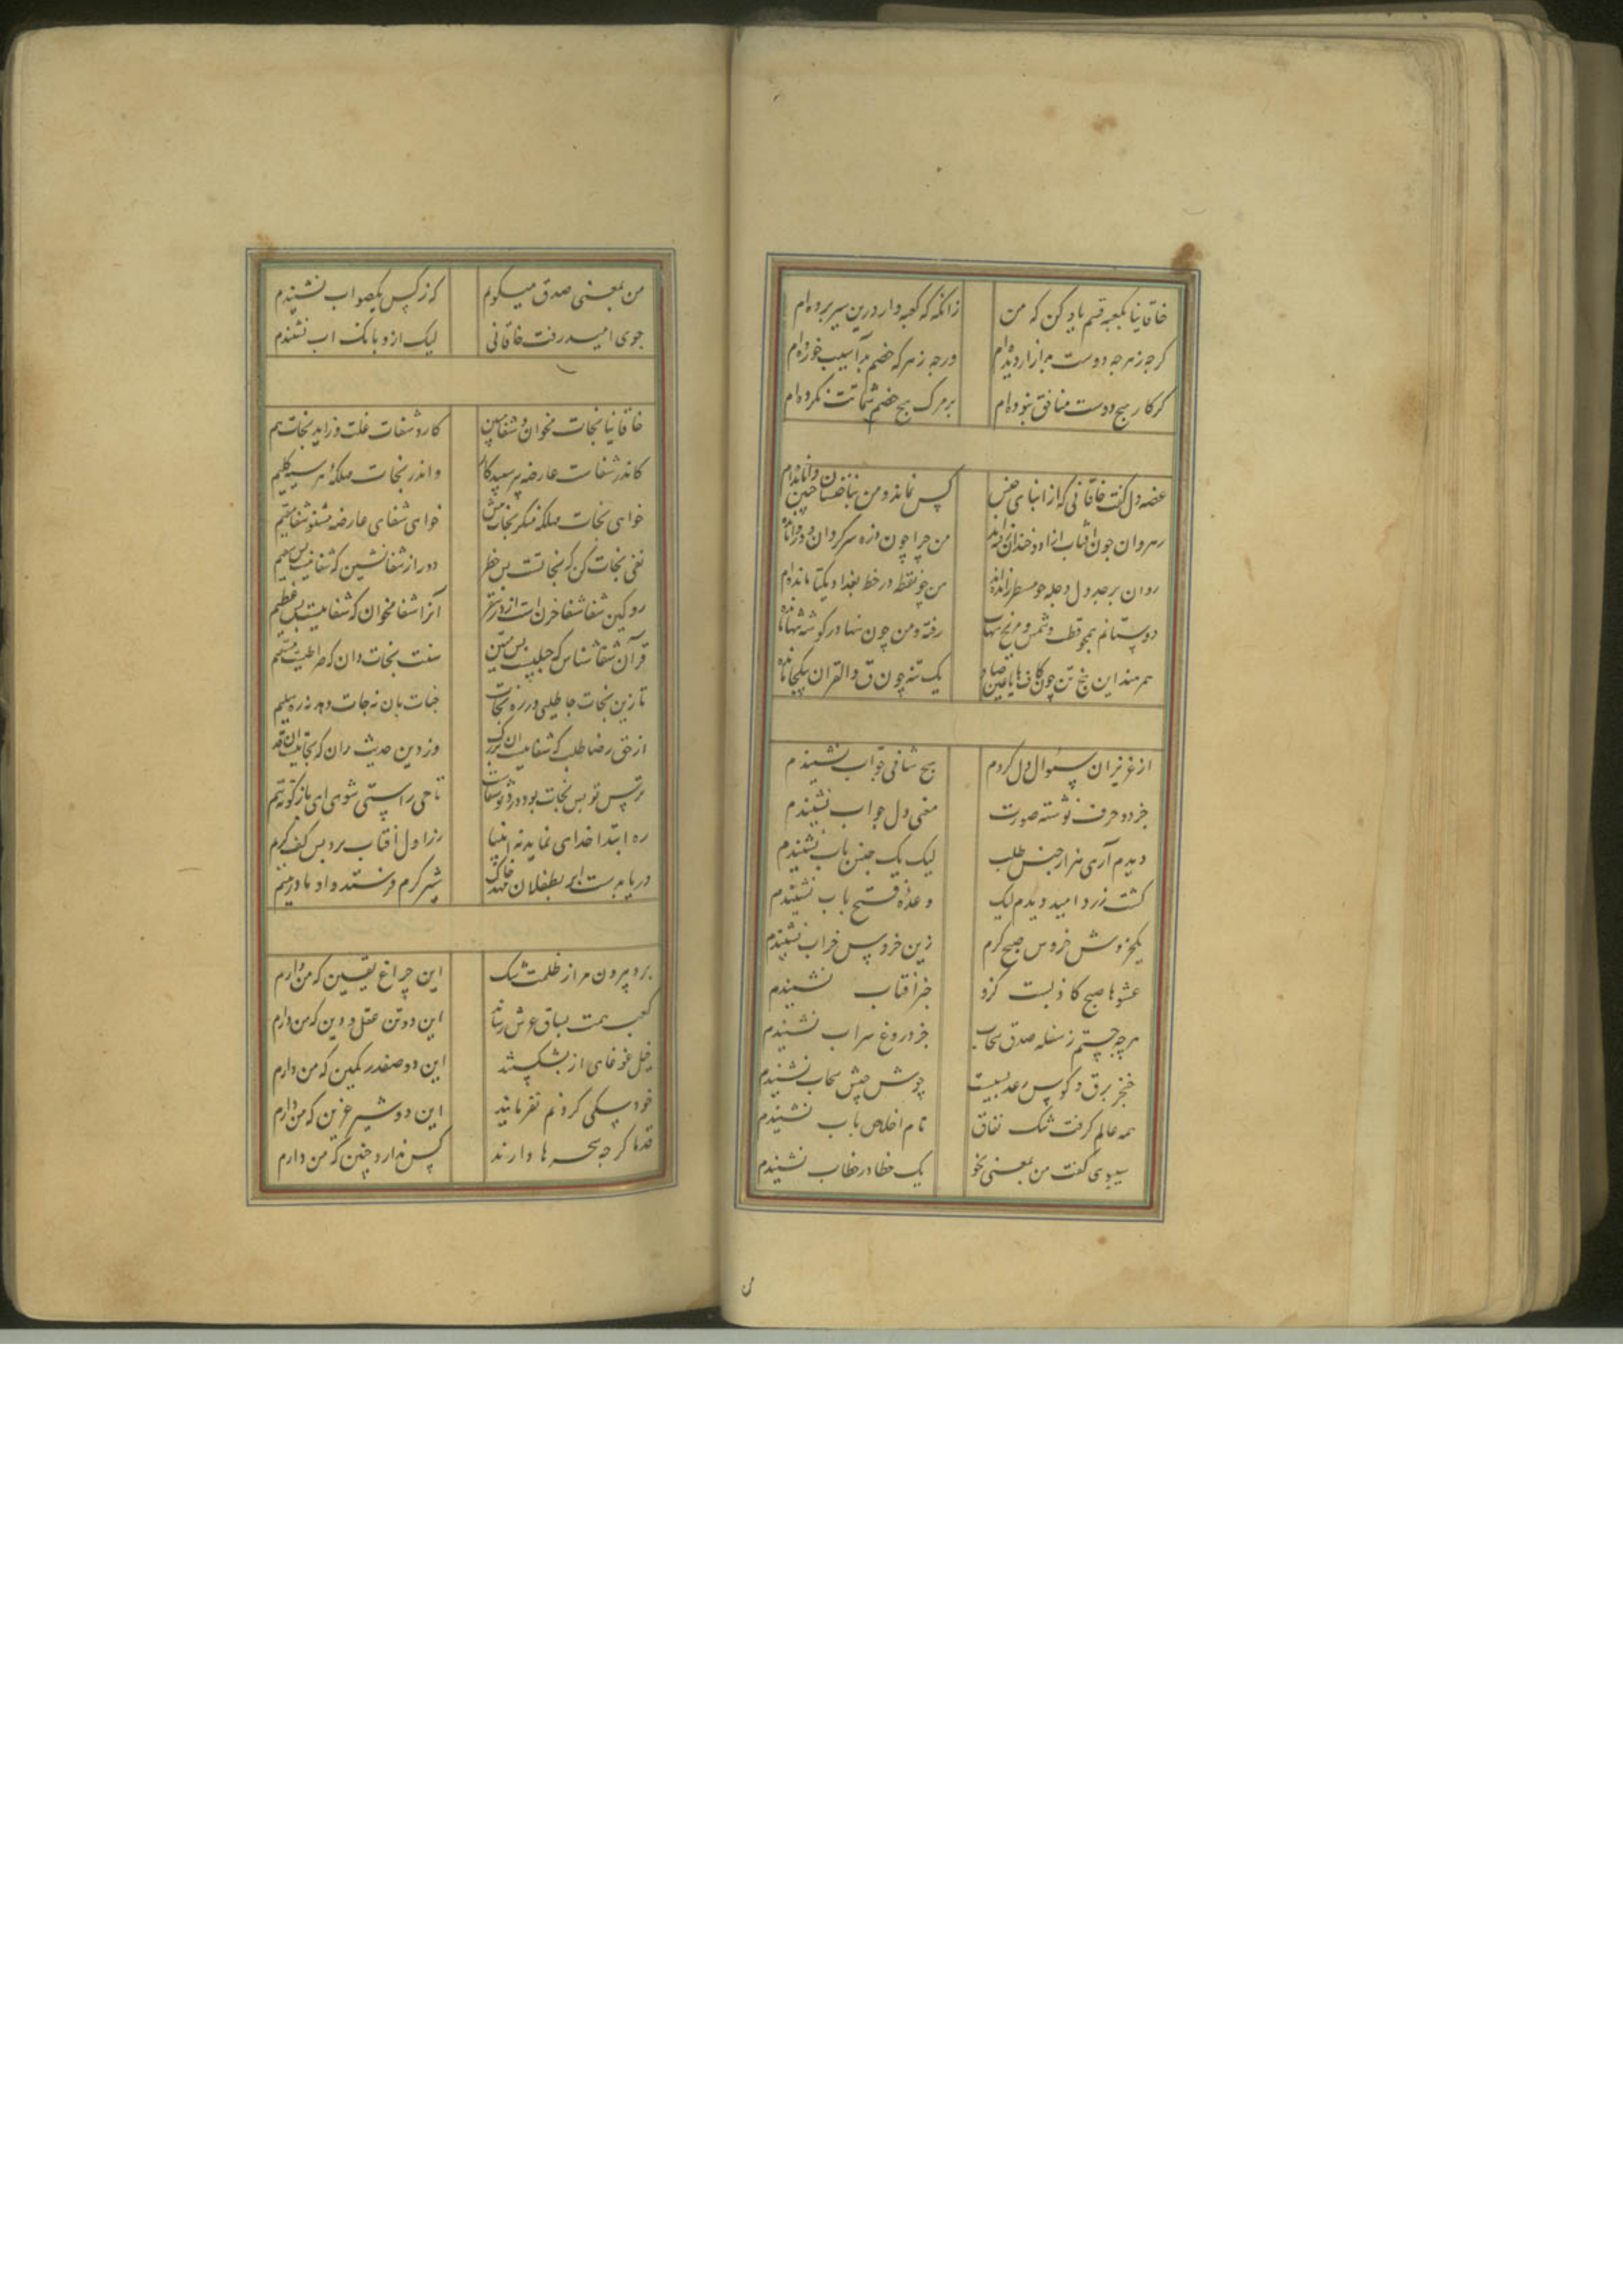 خاقانیا بکعبه قسم یاد کن که من زانکه که کعبه وار درین سیر برده‌ام
کرجه زهرجه دوست بد ازار دیده‌ام ورجه زهرکه خصم بد آسیب خورده‌ام
کرکار هیج دوست منافق نبوده‌ام برمرک هیج خصم شماتت نکرده‌ام
غصه دل کفت خاقانی که از ابنای جنس کس نماند و من بناجنسان جنین وامانده‌ام
رهروان جون افتاب ازاد و خندان رفته‌اند من جرا چون ذره سرکردان و دروا مانده‌ام
روان بر جدول دجله جو مسطر رانده‌اند من جو نقطه در خط بغداد یکتا مانده‌ام
دوستانم همجو قطب و شمس و مریخ شهاب رفته و من چون سها در کوشه تنها مانده‌ام
همرهند این پنج تن چون کاف هایاعین صاد یک تنه چون ق والقران یکجا مانده‌ام
از عزیزان سئوال دل کردم هیج شافی جواب نشنیدم
جز دو حرف نوشته صورت معنی دل جواب نشنیدم
دیدم آری هزار جنس طلب لیک یک جنس باب نشنیدم
کشت زرد امید دیدم لیک وعده فتح باب نشنیدم
یکخروش خروس صبح کرم زین خروس خراب نشنیدم
عشوها صبح کاذبست کزو خبر آفتاب نشنیدم
هرچه جستم ز سفله صدق سحاب جز دروغ سراب نشنیدم
خنجر برق و کوس رعد بسیست جوش جیش سحاب نشنیدم
همه عالم کرفت ننک نفاق نام اخلاص باب نشنیدم
سیبوی کفت من بمعنی نحو یک خطا در خطاب نشنیدم
من بمعنی صدق میکویم که ز کس یکصواب نشنیدم
جوی امید رفت خاقانی لیک ازو بانک اب نشنیدم
خاقانیا نجات مخوان و شفا مبین کارد شفات علت و زاید نجات هم
کاندر شفات عارضه هر سپید کار واندر نجات مهلکه هر سیه کلیم
خواهی نجات مهلکه منکر نجات بیش خواهی شفای عارضه مشنو شفا مقیم
نفی نجات کن که نجاتت بس خطر دور از شفا نشین که شفاییست بس سقیم
رو کین شفا شفا جرف است از سقر آنرا شفا مخوان که شفاییست بس عظیم
قرآن شفا شناس که حبلیست بس متین سنت نجات دان که صراطیست مستقیم
تا زین نجات جاطلبی در ره نجات جنات بان نه جات دهد نه ره سلیم
از حق رضا طلب که شفاییست ان بزرک وز دین حدیث ران که نجاتیست ان قدیم
ره ابتدا خدای نماید نه انبیا زراول آفتاب برد بس کف کرم
دریا بدست ابر بطفلان مهد خاک شیر کرم فرستد و او مادر
برد بیرون مرا ز ظلمت شک این چراغ یقین که من دارم
کعب همت بساق عرش رساند این دو تن عقل و دین که من دارم
خیل غوغای از بشکستند این دو صفدر کمین که من دارم
خود سکی کردنم نفرمایند این دو شیر عرین که من دارم
قدما کرجه سحرها دارند کس ندارد چنین که من دارم